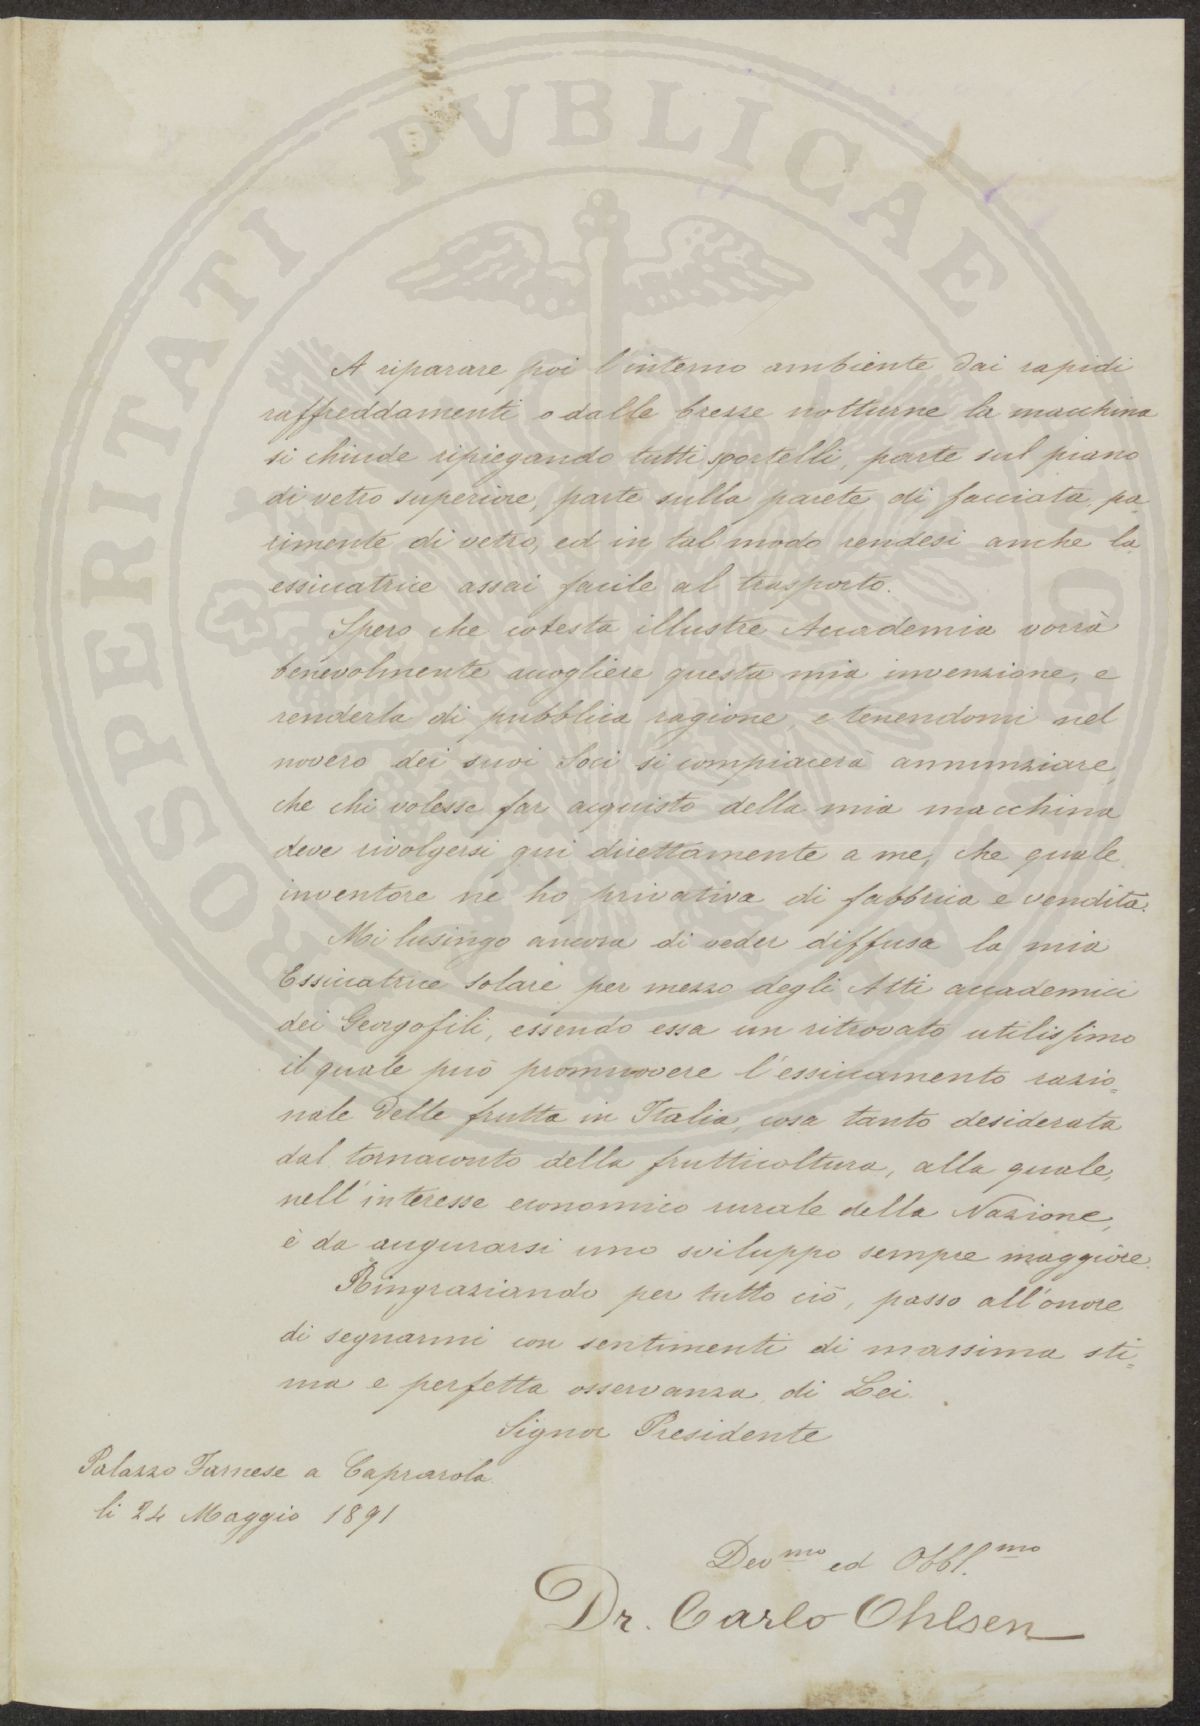 PROSPERITATI PVBLICAE AVGENDAE
A riparare poi l'interno ambiente dai rapidi
raffreddamenti o dalle brezze notturne la macchina
si chiude ripiegando tutti sportelli, parte sul piano
di vetro superiore, parte sulla parete di facciata pa-
rimente di vetro, ed in tal modo rendesi anche la
essiccatrice assai facile al trasporto.
Spero che cotesta illustre Accademia vorrà
benevolmente accogliere questa mia invenzione, e
renderla di pubblica ragione, e tenendomi nel
novero dei suoi Soci si compiacerà annunziare,
che chi volesse far acquisto della mia macchina
deve rivolgersi qui direttamente a me, che quale
inventore ne ho privativa di fabbrica e vendita.
Mi lusingo ancora di veder diffusa la mia
Essiccatrice solare per mezzo degli Atti accademici
dei Georgofili, essendo essa un ritrovato utilissimo
il quale può promuovere l'essiccamento razio=
nale delle frutta in Italia, cosa tanto desiderata
dal tornaconto della frutticoltura, alla quale,
nell'interesse economico rurale della Nazione,
è da augurarsi uno sviluppo sempre maggiore.
Ringraziando per tutto ciò, passo all'onore
di segnarmi con sentimenti di massima sti=
ma e perfetta osservanza di Lei
Signor Presidente
Palazzo Farnese a Caprarola
li 24 Maggio 1891
Dev.mo ed Obbl.mo
Dr. Carlo Ohlsen